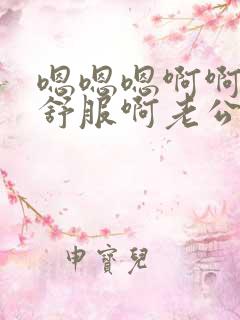 嗯嗯嗯啊啊
舒服啊老公
申寶兒